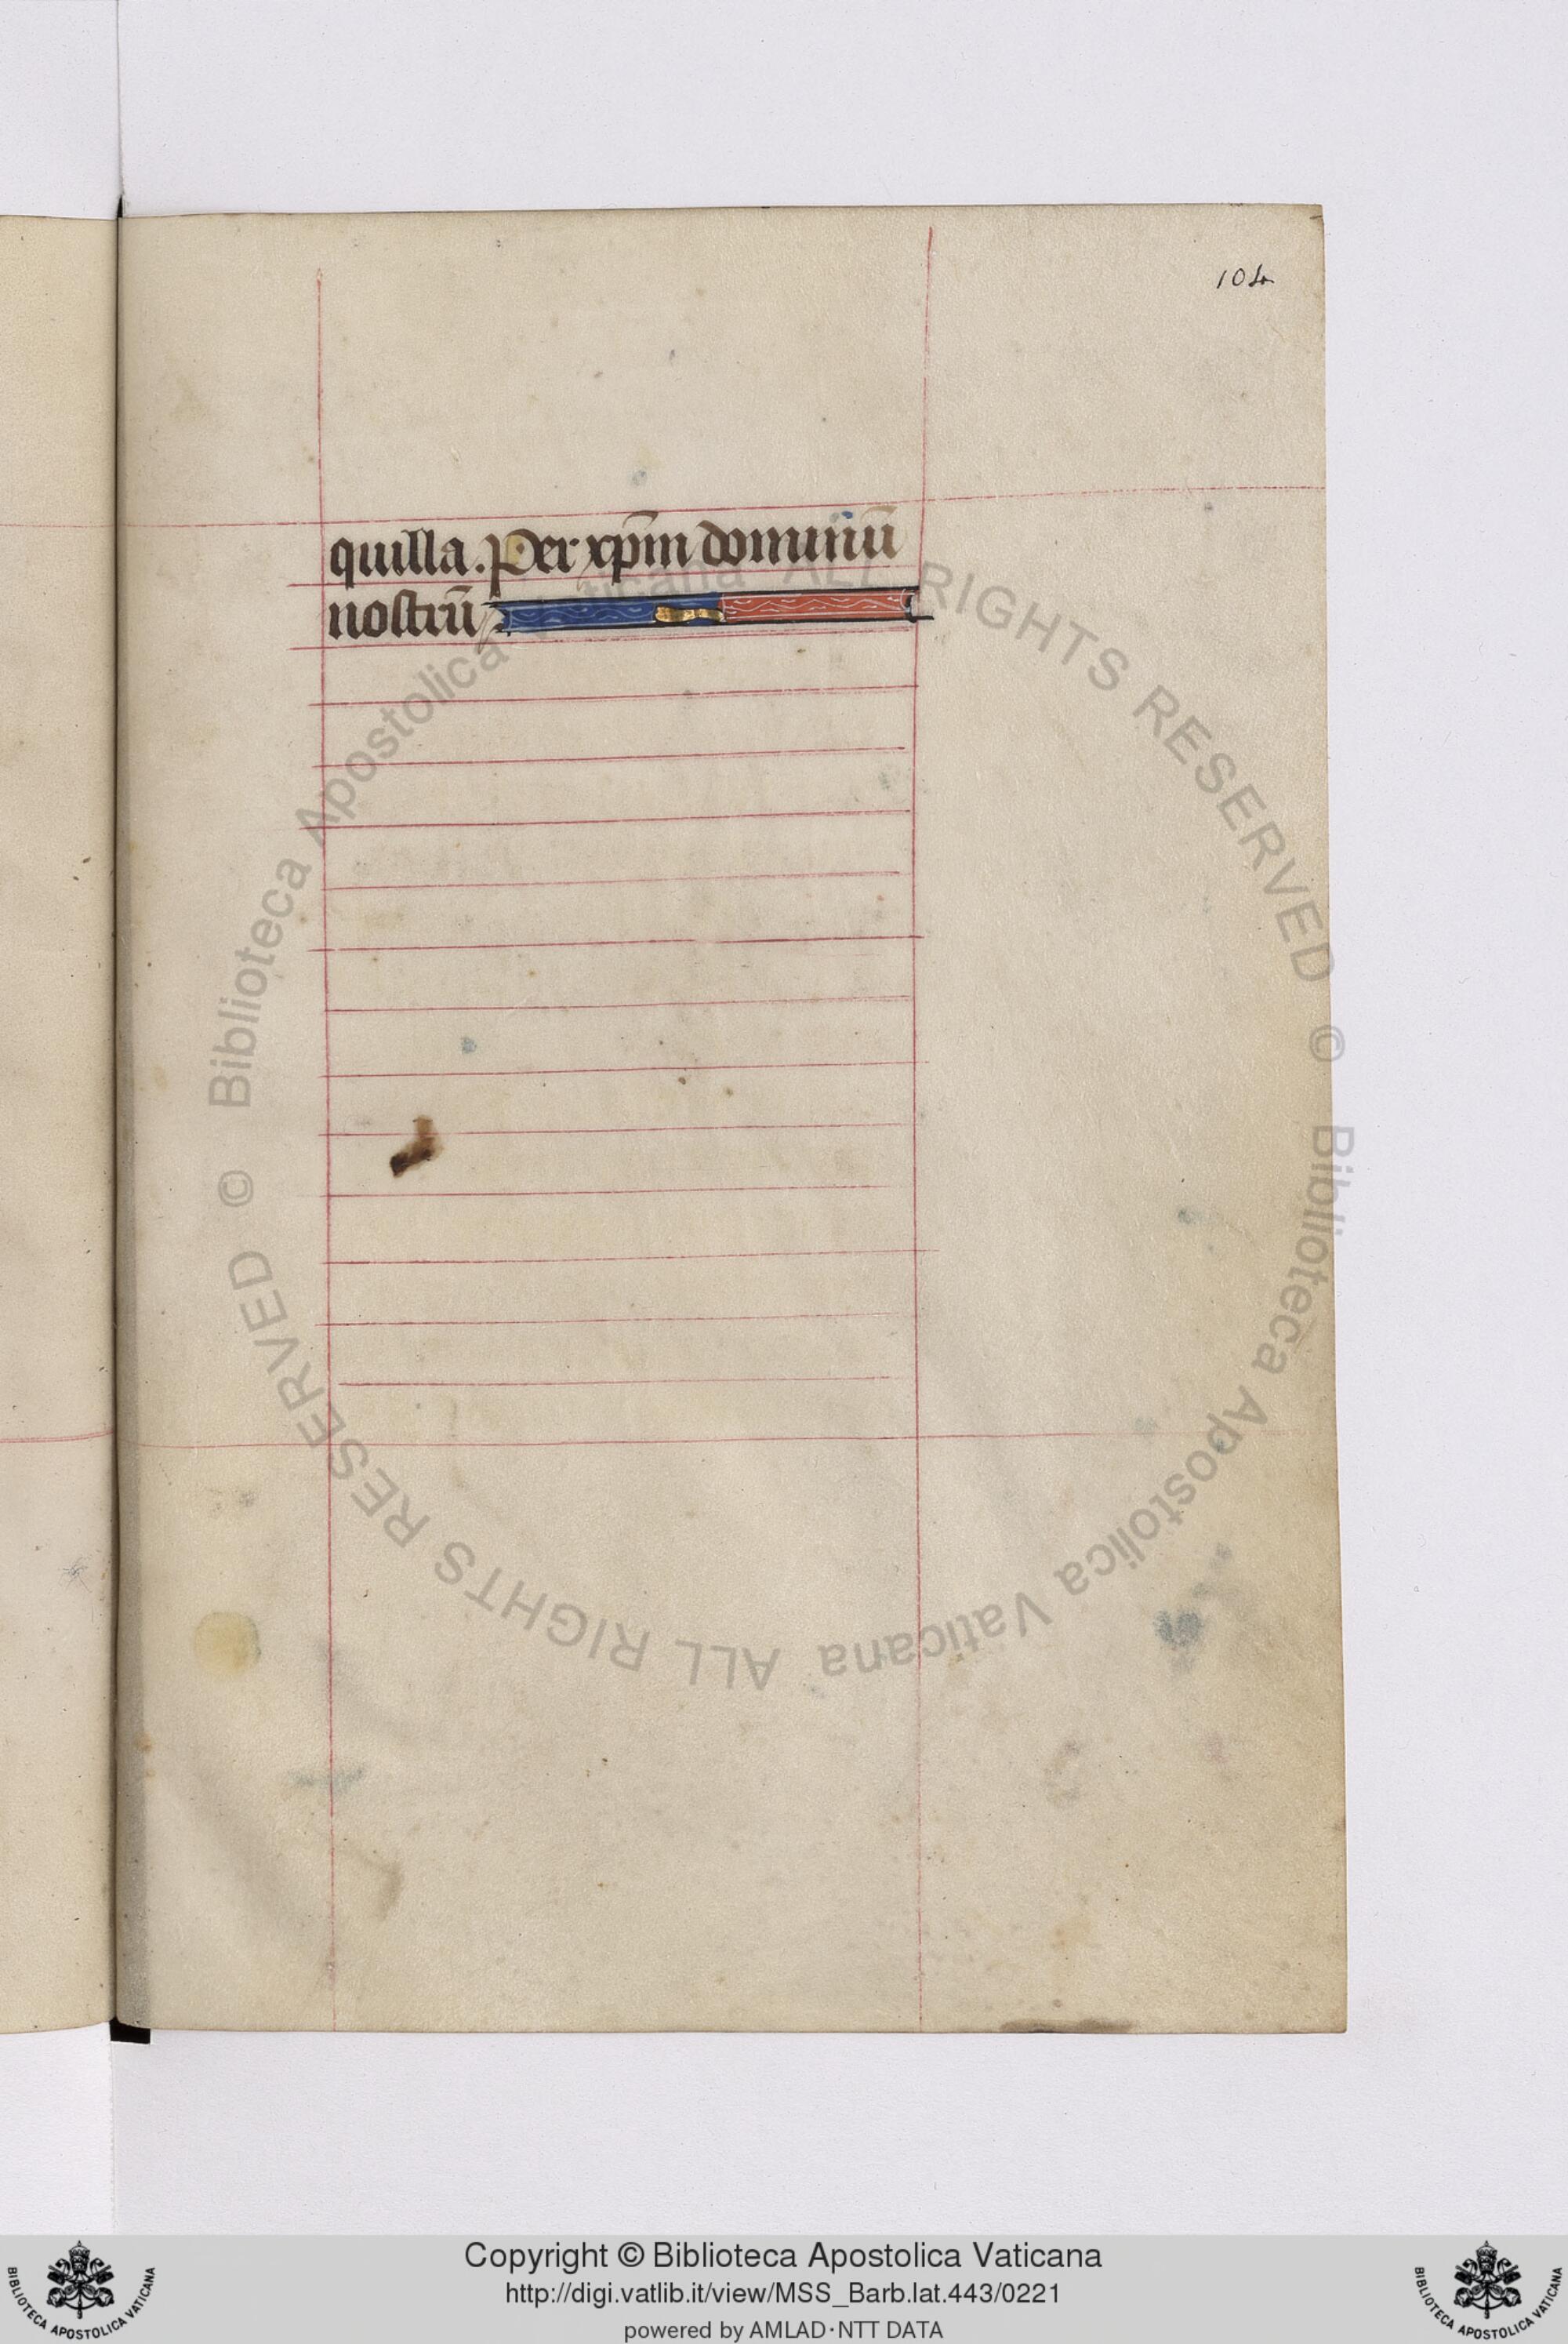 104
quilla. Per xp̄m dominū
nostrū
© Biblioteca Apostolica Vaticana ALL RIGHTS RESERVED
© Biblioteca Apostolica Vaticana ALL RIGHTS RESERVED
Copyright © Biblioteca Apostolica Vaticana
http://digi.vatlib.it/view/MSS_Barb.lat.443/0221
powered by AMLAD·NTT DATA
BIBLIOTECA APOSTOLICA VATICANA
BIBLIOTECA APOSTOLICA VATICANA